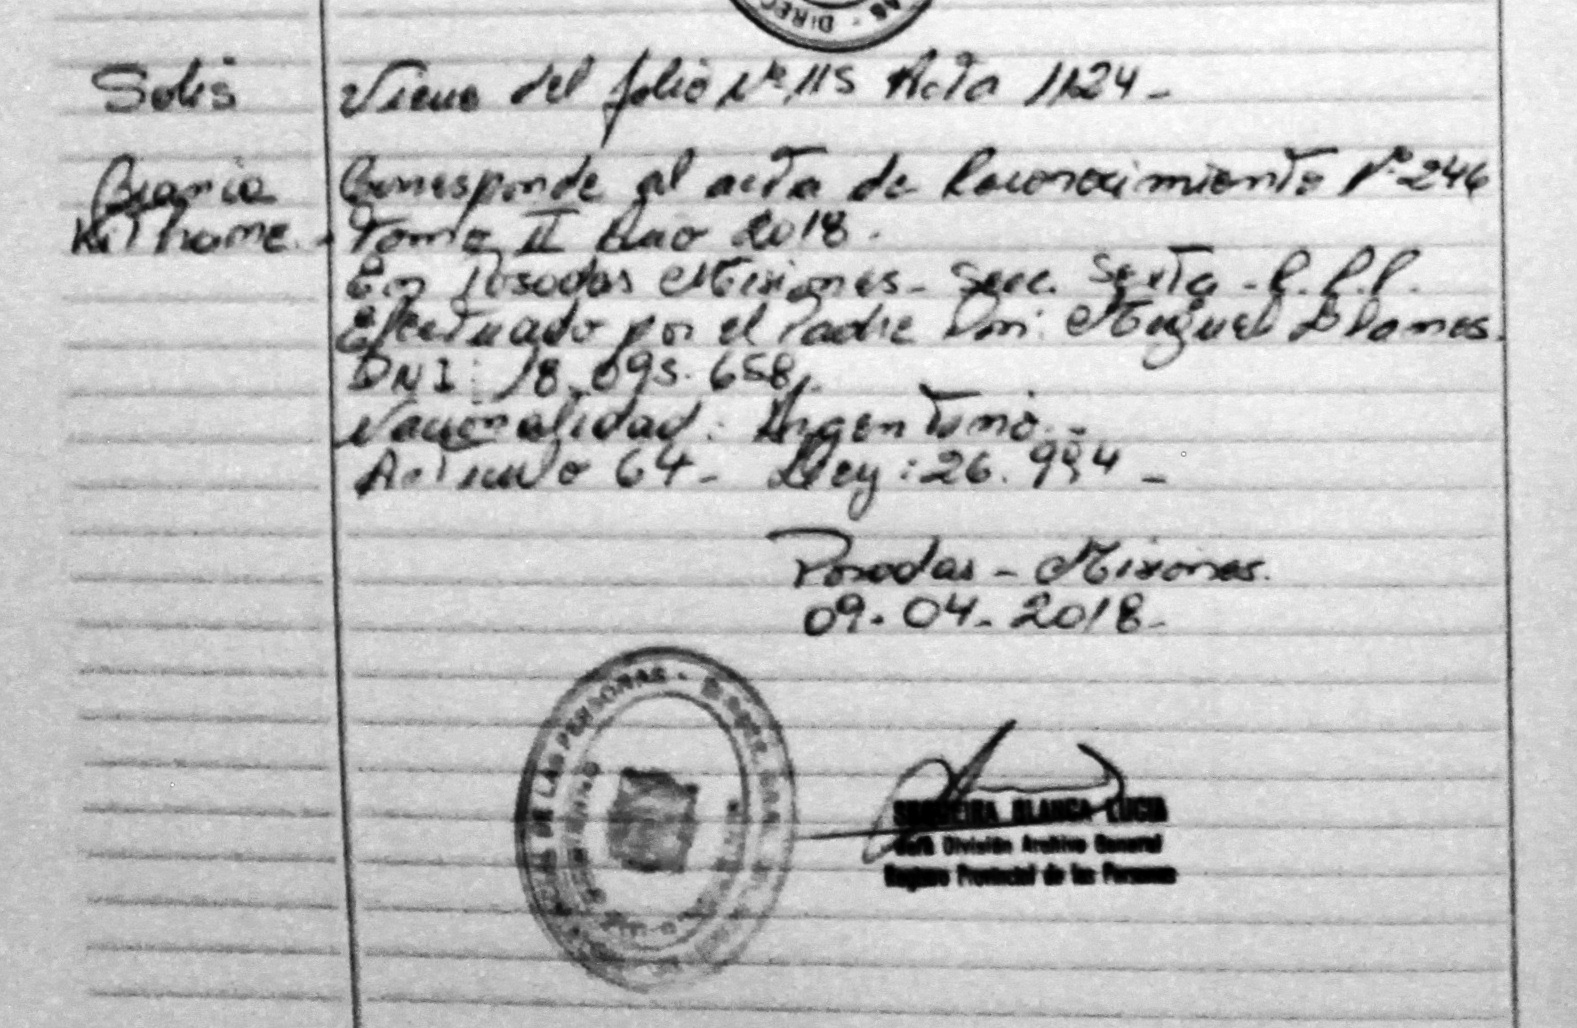 DIREC
Solis
Viene del folio Nº 115 Acta 1124 -
Corresponde al acta de Reconocimiento Nº 246
Tomo II Año 2018.
En Posadas Misiones - Secc. Sexta - R.P.P.
Efectuado por el Padre Don: Miguel
DNI: 18.095.658
Nacionalidad: Argentino. -
Articulo 64 - Ley: 26.994 -
Posadas - Misiones.
09-04-2018 -
DE LAS PERSONAS -
BLANCA LUCIA
Jefa División Archivo General
Registro Provincial de las Personas